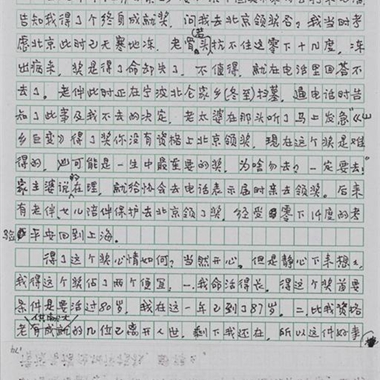 告知我得了个终身成就奖，问我去北京领奖否？我当时考
虑北京此时已天寒地冻，老骨头(若)抗不住这零下十几度，冻
出病来，奖是得了命却失了，不值得，就在电话里回答不
去了。老伴此时正在宁波北仑家乡(冬至)扫墓，通电话时告
知了此事及我不去的决定，老太婆在那头听了马上发急《山
乡巨变》得了奖你没有资格上北京领奖，现在这个奖是难
得的，也可能是一生中最重要的奖，为啥勿去？一定要去！
家主婆说的在理，就给协会去电话表示届时亲去领奖。后来
有老伴女儿陪伴保护去北京领了奖，经受零下14度的考
验平安回到上海。
得了这个奖心情如何？当然开心。但是静心下来想想，
我得这个奖占了两个便宜，一、我命活得长，得这个奖首要
条件是要活过80岁，我在这一年已到了87岁。二、比我资格
老有成就的几位已离开人世，剩下我还在，所以这件好事